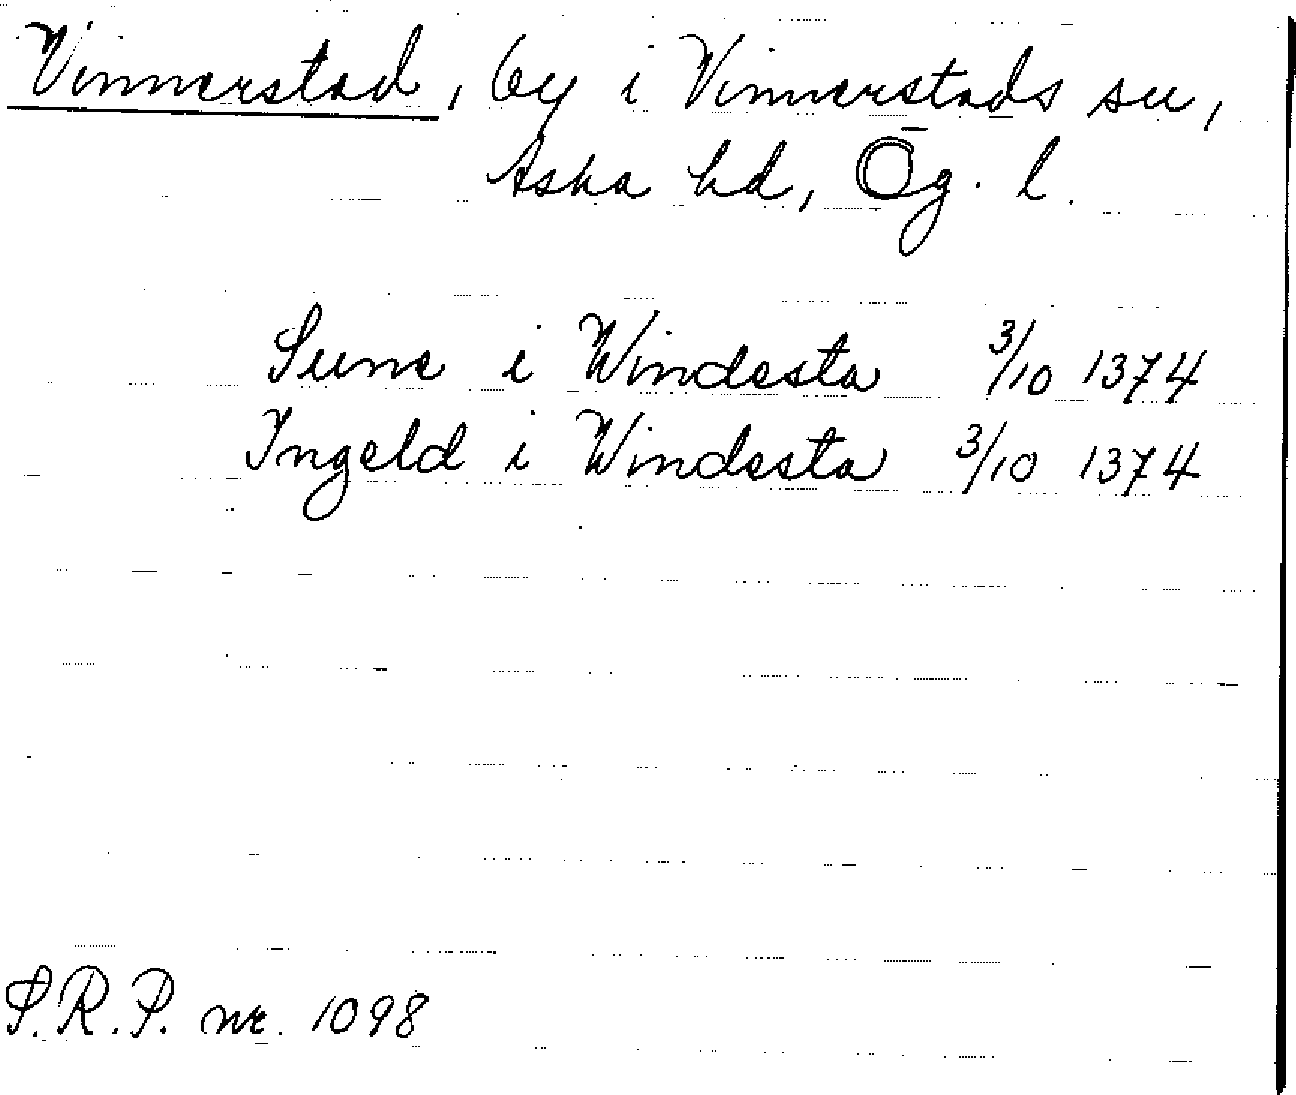 Vinnerstad, by i Vinnerstads sn,
Aska hd, Ög. l.
Sune i Windesta 3/10 1374
Ingeld i Windesta 3/10 1374
S.R.P. nr. 1098